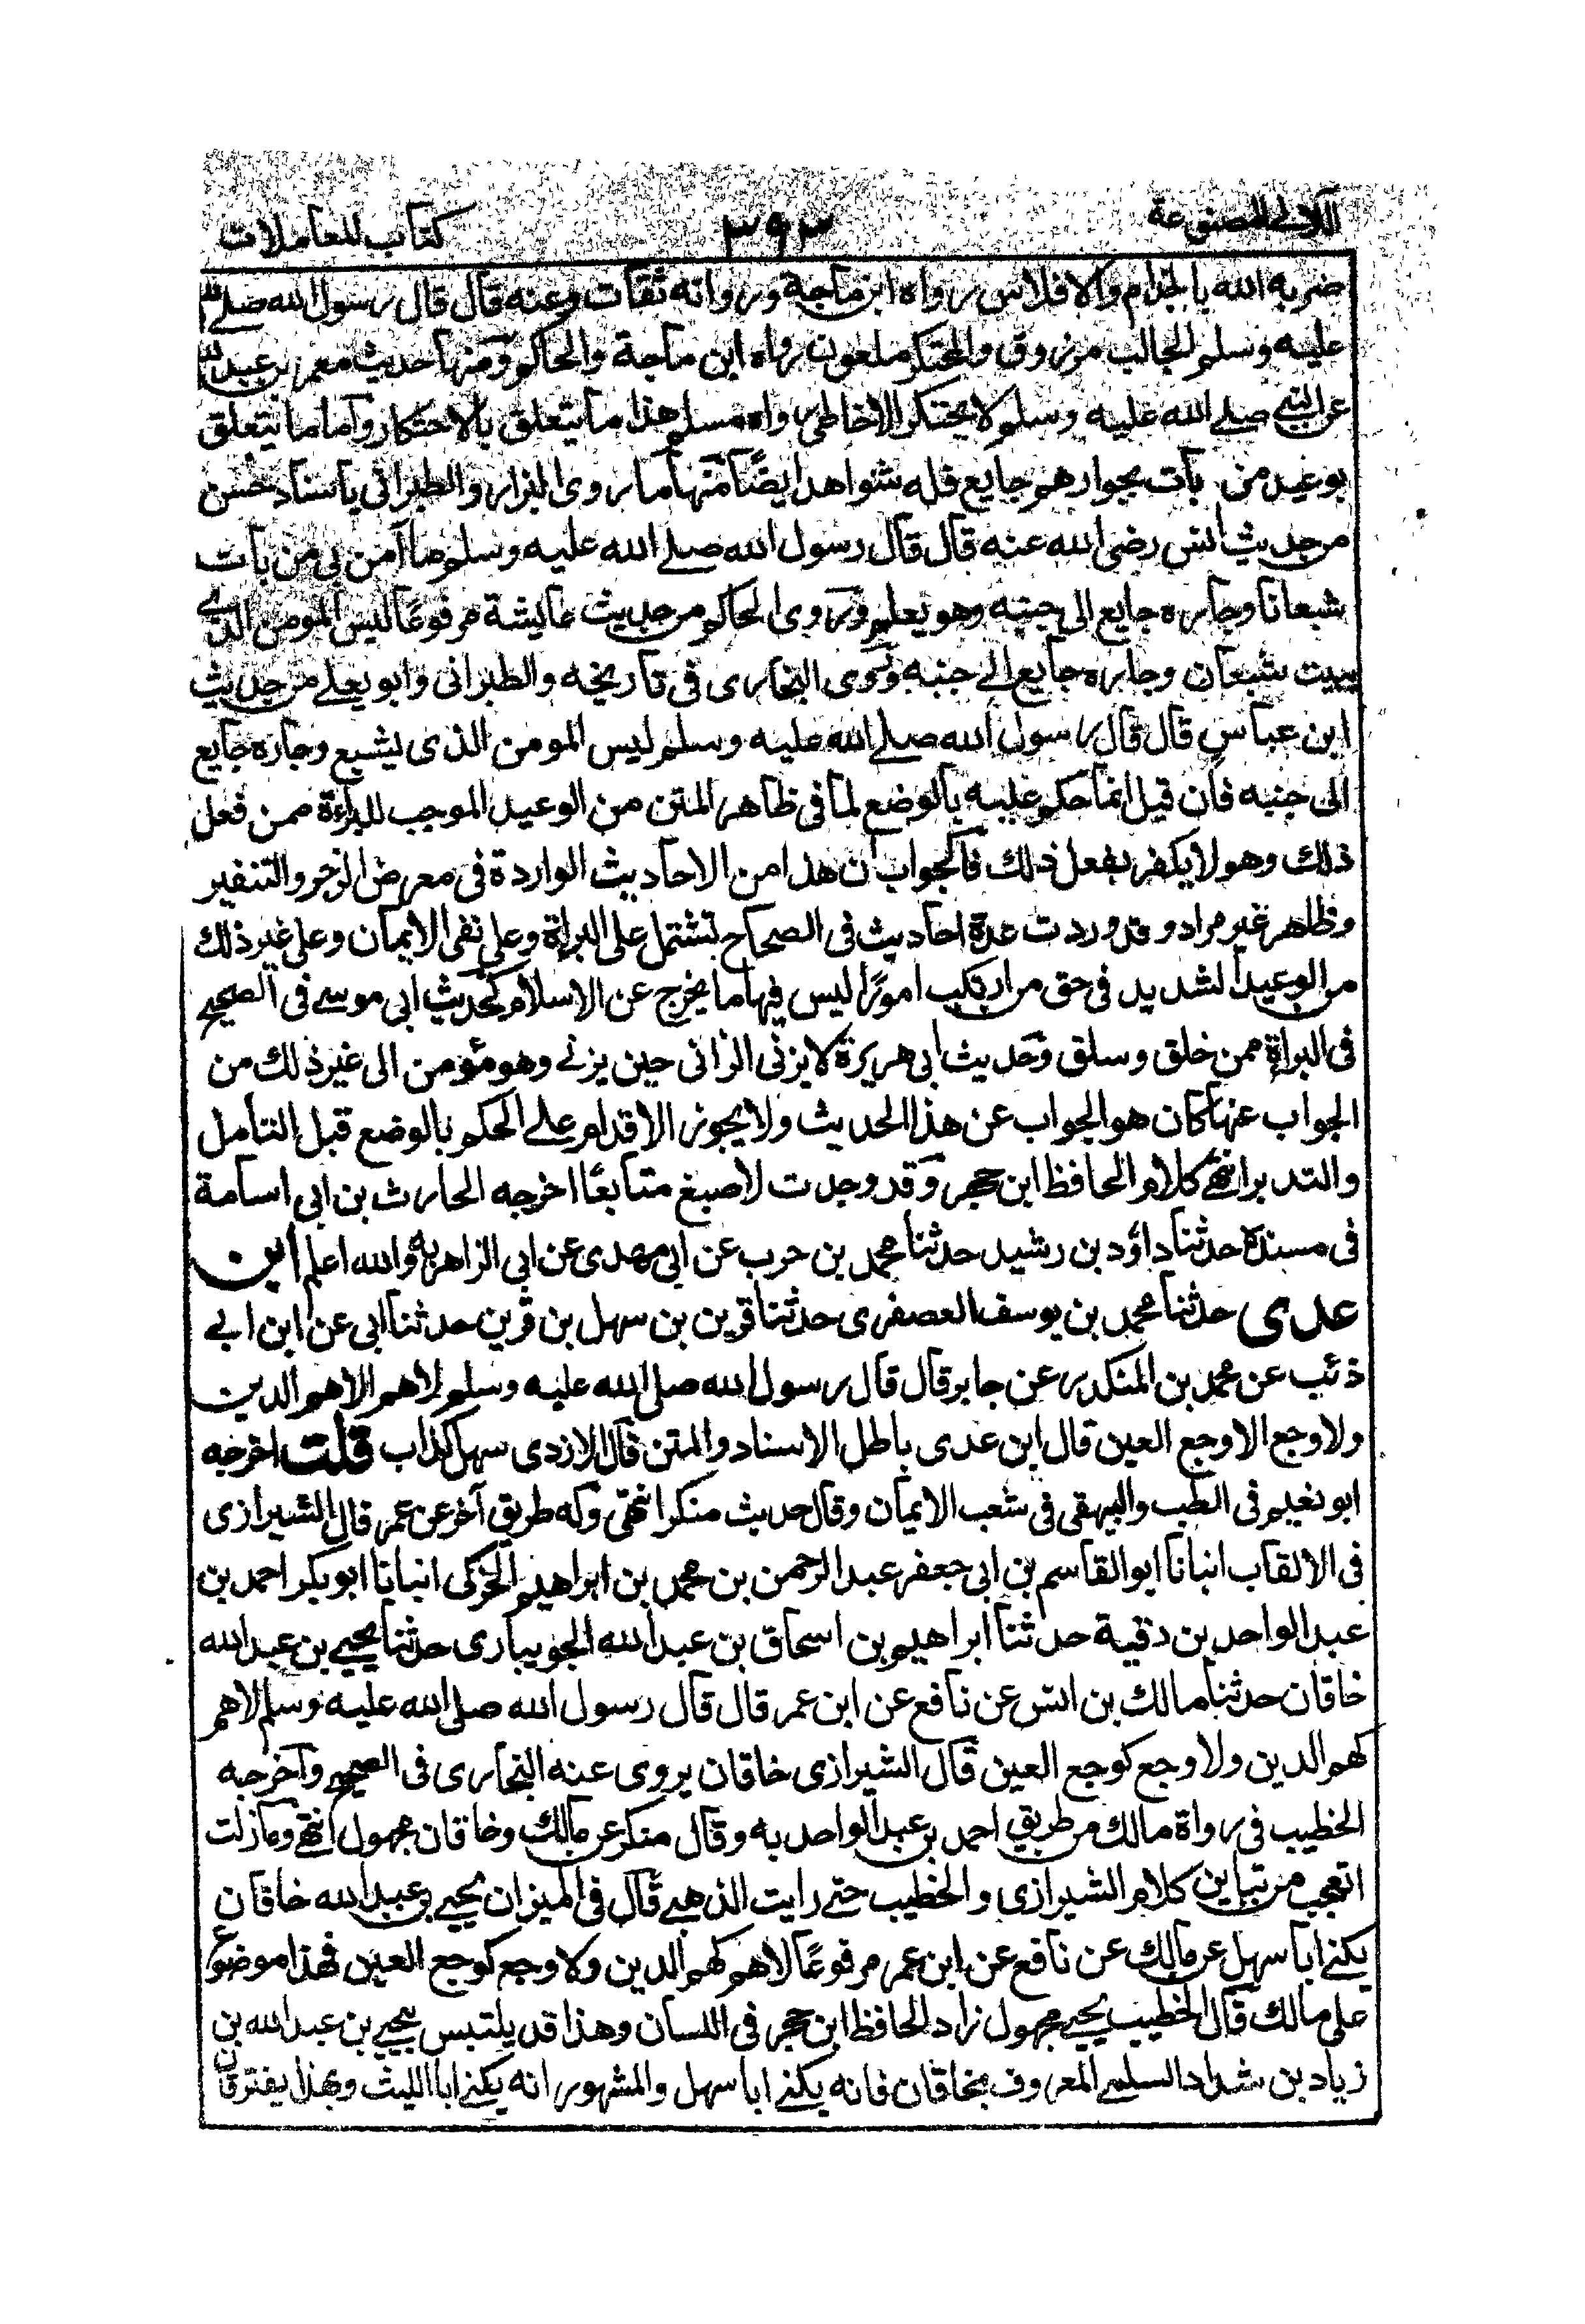 اللآلي المصنوعة ٣٩٣ كتاب المعاملات
ضربه الله بالجذام والافلاس رواه ابن ماجة ورواته ثقات وعنه قال قال رسول الله صلى الله
عليه وسلم الجالب مرزوق والمحتكر ملعون رواه ابن ماجة والحاكم ومنها حديث معمر بن عبد الله
عن النبي صلے الله عليه وسلم لا يحتكر الا خاطئ رواه مسلم هذا ما يتعلق بالاحتكار واما ما يتعلق
بوعيد من بات بجوارهم جايع فله شواهد ايضًا منها ما روى البزار والطبراني باسناد حسن
من حديث انس رضى الله عنه قال قال رسول الله صلے الله عليه وسلم ما آمن بى من بات
شبعانا وجاره جايع الى جنبه وهو يعلم وروى الحاكم من حديث عايشة مرفوعًا ليس المومن الذے
يبيت شبعان وجاره جايع الے جنبه وروى البخارى فى تاريخه والطبرانى وابو يعلے من حديث
ابن عباس قال قال رسول الله صلے الله عليه وسلم ليس المومن الذى يشبع وجاره جايع
الى جنبه فان قيل انما حكم عليه بالوضع لما فى ظاهر المتن من الوعيد الموجب للبراءة ممن فعل
ذلك وهو لا يكفر بفعل ذلك فالجواب ان هذا من الاحاديث الواردة فى معرض الزجر والتنفير
وظاهره غير مراد وقد وردت عدة احاديث فى الصحاح تشتمل على البراة وعلى نفى الايمان وعلى غير ذلك
من الوعيد الشديد فى حق من ارتكب امورًا ليس فيها ما يخرج عن الاسلام كحديث ابى موسے فى الصحيح
فى البراة ممن حلق وسلق وحديث ابى هريرة لا يزنى الزانى حين يزنے وهو مؤمن الى غير ذلك من
الجواب عنها كان هو الجواب عن هذا الحديث ولا يجوز الاقدام علے الحكم بالوضع قبل التأمل
والتدبر انتهے كلام الحافظ ابن حجر وقد وجدت لاصبغ متابعًا اخرجه الحارث بن ابى اسامة
فى مسنده حدثنا داؤد بن رشيد حدثنا محمد بن حرب عن ابى مهدى عن ابى الزاهرية به والله اعلم ابن
عدى حدثنا محمد بن يوسف العصفرى حدثنا قرين بن سهل بن قرين حدثنا ابى عن ابن ابے
ذئب عن محمد بن المنكدر عن جابر قال قال رسول الله صلى الله عليه وسلم لا هم الا هم الدين
ولا وجع الا وجع العين قال ابن عدى باطل الاسناد والمتن قال الازدى سهل كذاب قلت اخرجه
ابو نعيم فى الطب والبيهقى فى شعب الايمان وقال حديث منكر انتهى وله طريق آخر عن عمر قال الشيرازى
فى الالقاب انبانا ابو القاسم بن ابى جعفر عبد الرحمن بن محمد بن ابراهيم انبانا ابو بكر احمد بن
عبد الواحد بن دقية حدثنا ابراهيم بن اسحاق بن عبد الله الجويبارى حدثنا يحيے بن عبد الله
خاقان حدثنا مالك بن انس عن نافع عن ابن عمر قال قال رسول الله صلى الله عليه وسلم لا هم
كهم الدين ولا وجع كوجع العين قال الشيرازى خاقان يروى عنه البخارى فى الصحيح وآخرجه
الخطيب فى رواة مالك من طريق احمد بن عبد الواحد به وقال منكر عن مالك وخاقان مجهول انتهے وما زلت
اتعجب من تباين كلام الشيرازى والخطيب حتے رايت الذهبے قال فى الميزان يحيے بن عبد الله خاقان
يكنے ابا سهل عن مالك عن نافع عن ابن عمر مرفوعًا لا هم كهم الدين ولا وجع كوجع العين فهذا موضوع
على مالك قال الخطيب يحيے مجهول زاد الحافظ ابن حجر فى اللسان وهذا قد يلتبس بيحيے بن عبد الله بن
زياد بن شداد السلمے المعروف بخاقان فانه يكنے ابا سهل والمشهور انه يكنے ابا الليث وبهذا يفترقان